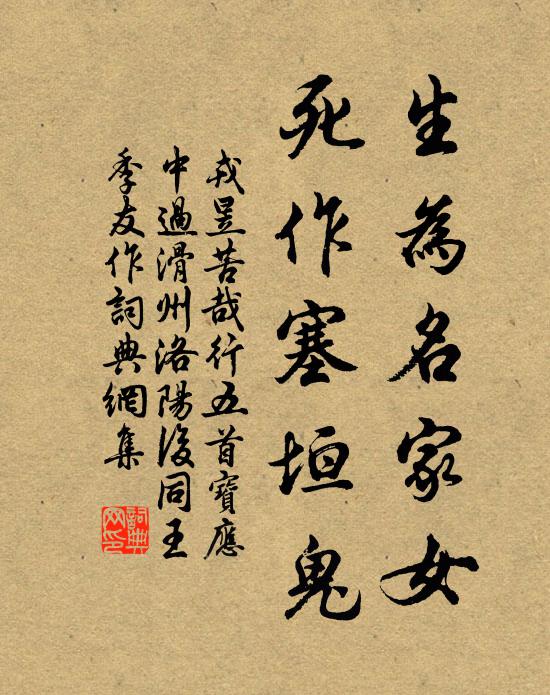 生為名家女
死作塞垣鬼
戎昱苦哉行五首寶應
中過滑州洛陽後同王
季友作詞典網集
詞典網印